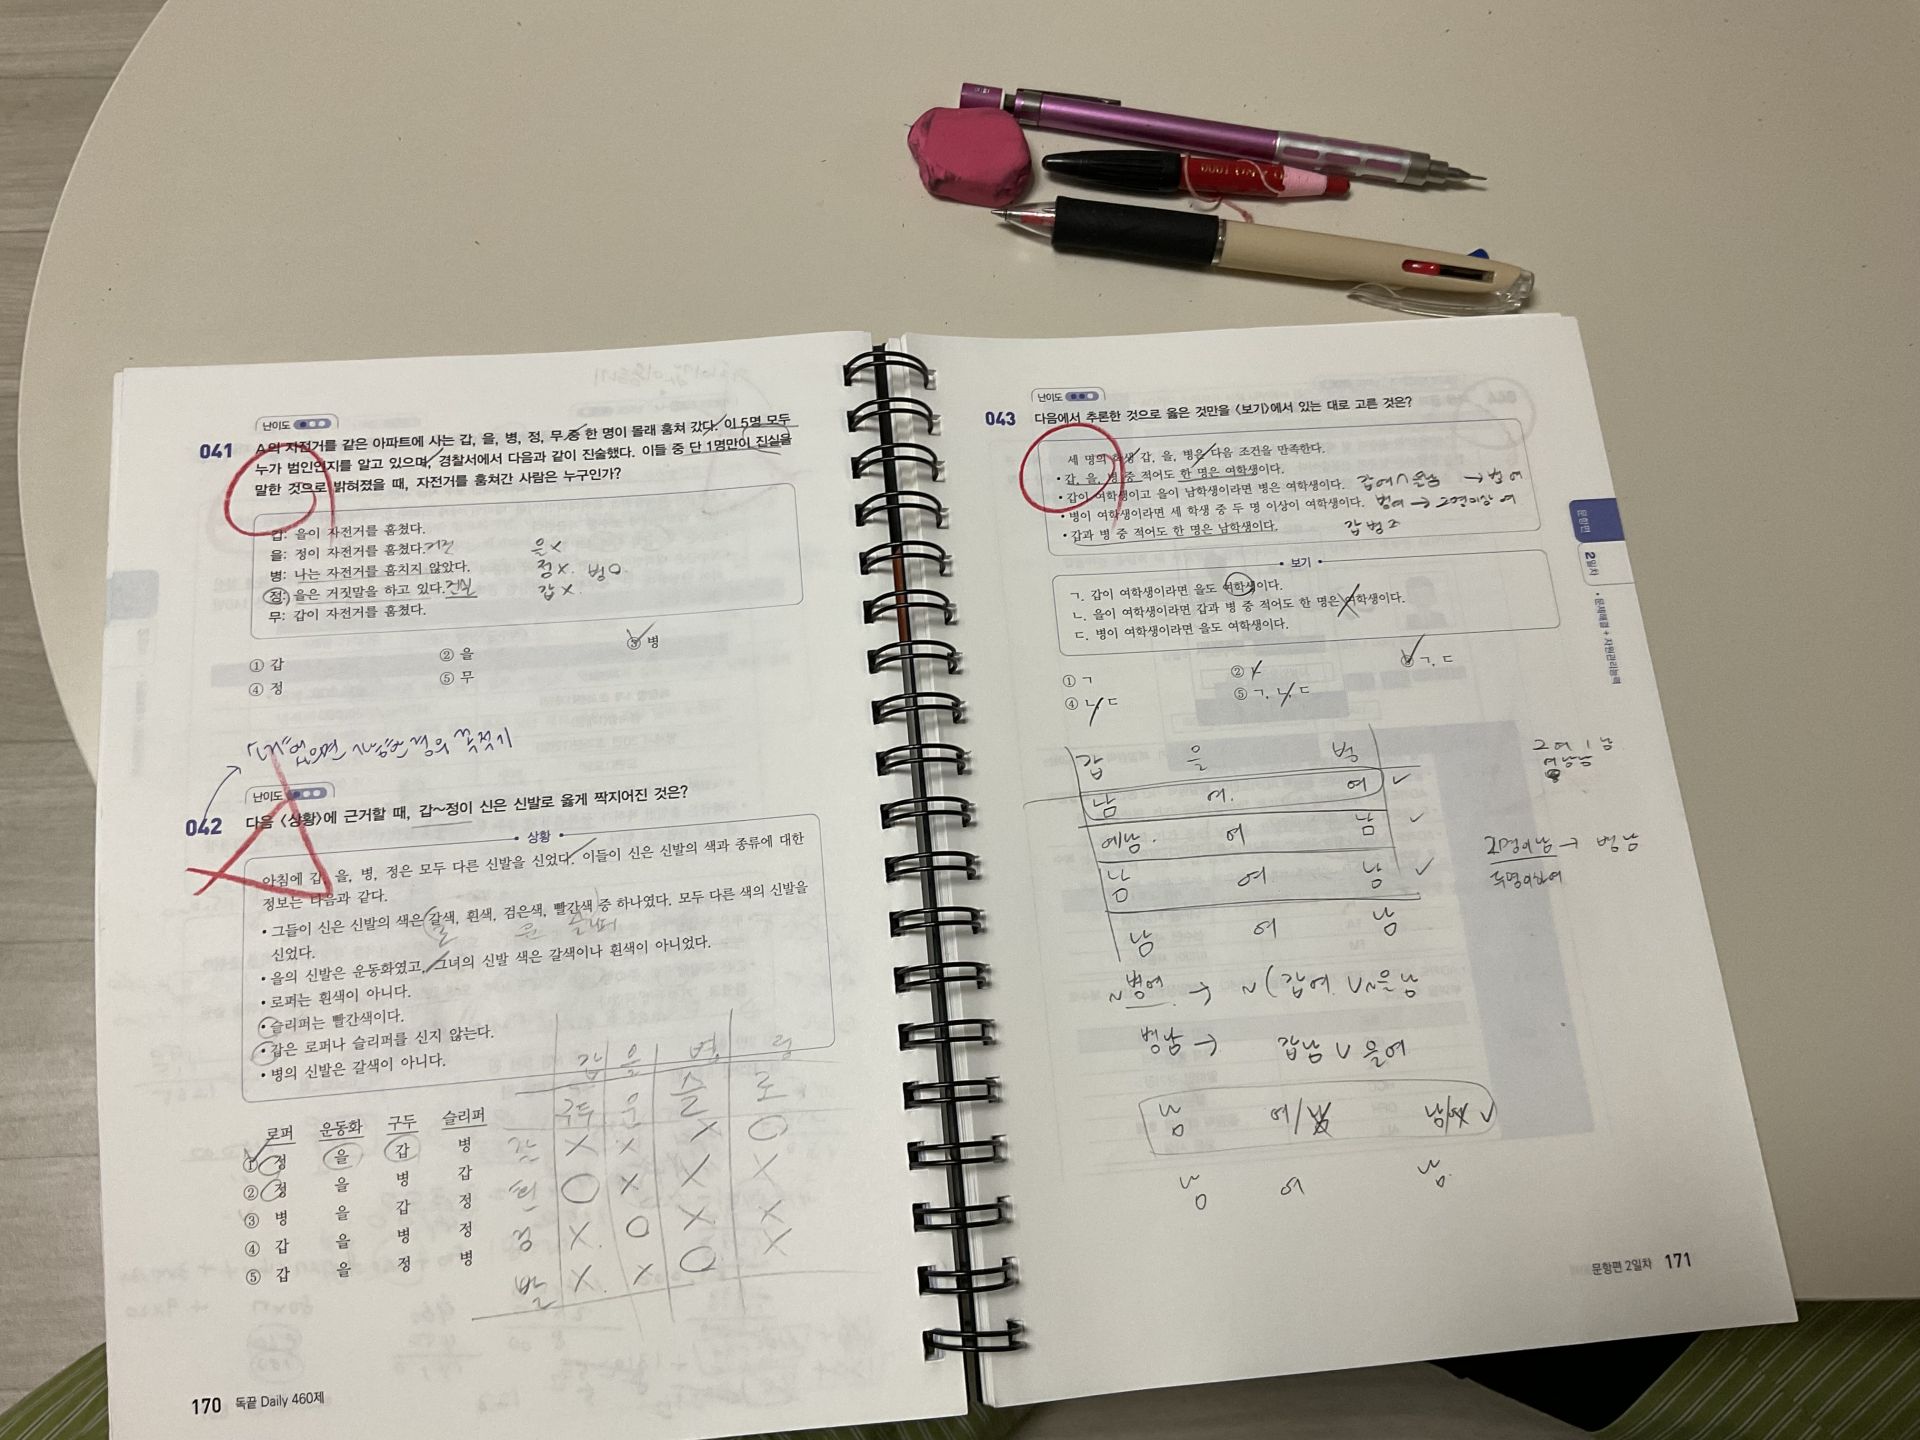 난이도
041 A의 자전거를 같은 아파트에 사는 갑, 을, 병, 정, 무 중 한 명이 몰래 훔쳐 갔다. 이 5명 모두
누가 범인인지를 알고 있으며, 경찰서에서 다음과 같이 진술했다. 이들 중 단 1명만이 진실을
말한 것으로 밝혀졌을 때, 자전거를 훔쳐간 사람은 누구인가?
갑: 을이 자전거를 훔쳤다.
을: 정이 자전거를 훔쳤다. 거짓 을X
병: 나는 자전거를 훔치지 않았다. 정X 병O
정: 을은 거짓말을 하고 있다. 진실 갑X
무: 갑이 자전거를 훔쳤다.
① 갑 ② 을 ③ 병
④ 정 ⑤ 무
난이도
042 다음 <상황>에 근거할 때, 갑~정이 신은 신발로 옳게 짝지어진 것은?
• 상황 •
아침에 갑, 을, 병, 정은 모두 다른 신발을 신었다. 이들이 신은 신발의 색과 종류에 대한
정보는 다음과 같다.
• 그들이 신은 신발의 색은 갈색, 흰색, 검은색, 빨간색 중 하나였다. 모두 다른 색의 신발을
신었다.
• 을의 신발은 운동화였고, 그녀의 신발 색은 갈색이나 흰색이 아니었다.
• 로퍼는 흰색이 아니다.
• 슬리퍼는 빨간색이다.
• 갑은 로퍼나 슬리퍼를 신지 않는다.
• 병의 신발은 갈색이 아니다.
로퍼 운동화 구두 슬리퍼
① 정 을 갑 병
② 정 을 병 갑
③ 병 을 갑 정
④ 갑 을 병 정
⑤ 갑 을 정 병
갑 을 병 정
구두 운 슬 로
갈 X X X O
흰 O X X X
검 X O X X
빨 X X O X
170 독끝 Daily 460제
난이도
043 다음에서 추론한 것으로 옳은 것만을 <보기>에서 있는 대로 고른 것은?
세 명의 학생 갑, 을, 병은 다음 조건을 만족한다.
• 갑, 을, 병 중 적어도 한 명은 여학생이다.
• 갑이 여학생이고 을이 남학생이라면 병은 여학생이다. 갑여∧을남 → 병여
• 병이 여학생이라면 세 학생 중 두 명 이상이 여학생이다. 병여 → 2명이상 여
• 갑과 병 중 적어도 한 명은 남학생이다.
• 보기 •
ㄱ. 갑이 여학생이라면 을도 여학생이다.
ㄴ. 을이 여학생이라면 갑과 병 중 적어도 한 명은 여학생이다.
ㄷ. 병이 여학생이라면 을도 여학생이다.
① ㄱ ② ㄴ ③ ㄱ, ㄷ
④ ㄴ, ㄷ ⑤ ㄱ, ㄴ, ㄷ
갑 을 병
남 여 여
여 남
남 여 남
남 여 남
2여 1남
~병여 → ~(갑여 ∨ ~을남
병남 → 갑남 ∨ 을여
남 여/남 남/여
남 여 남
문항편
2일차
• 문제해결 + 자원관리능력
문항편 2일차 171